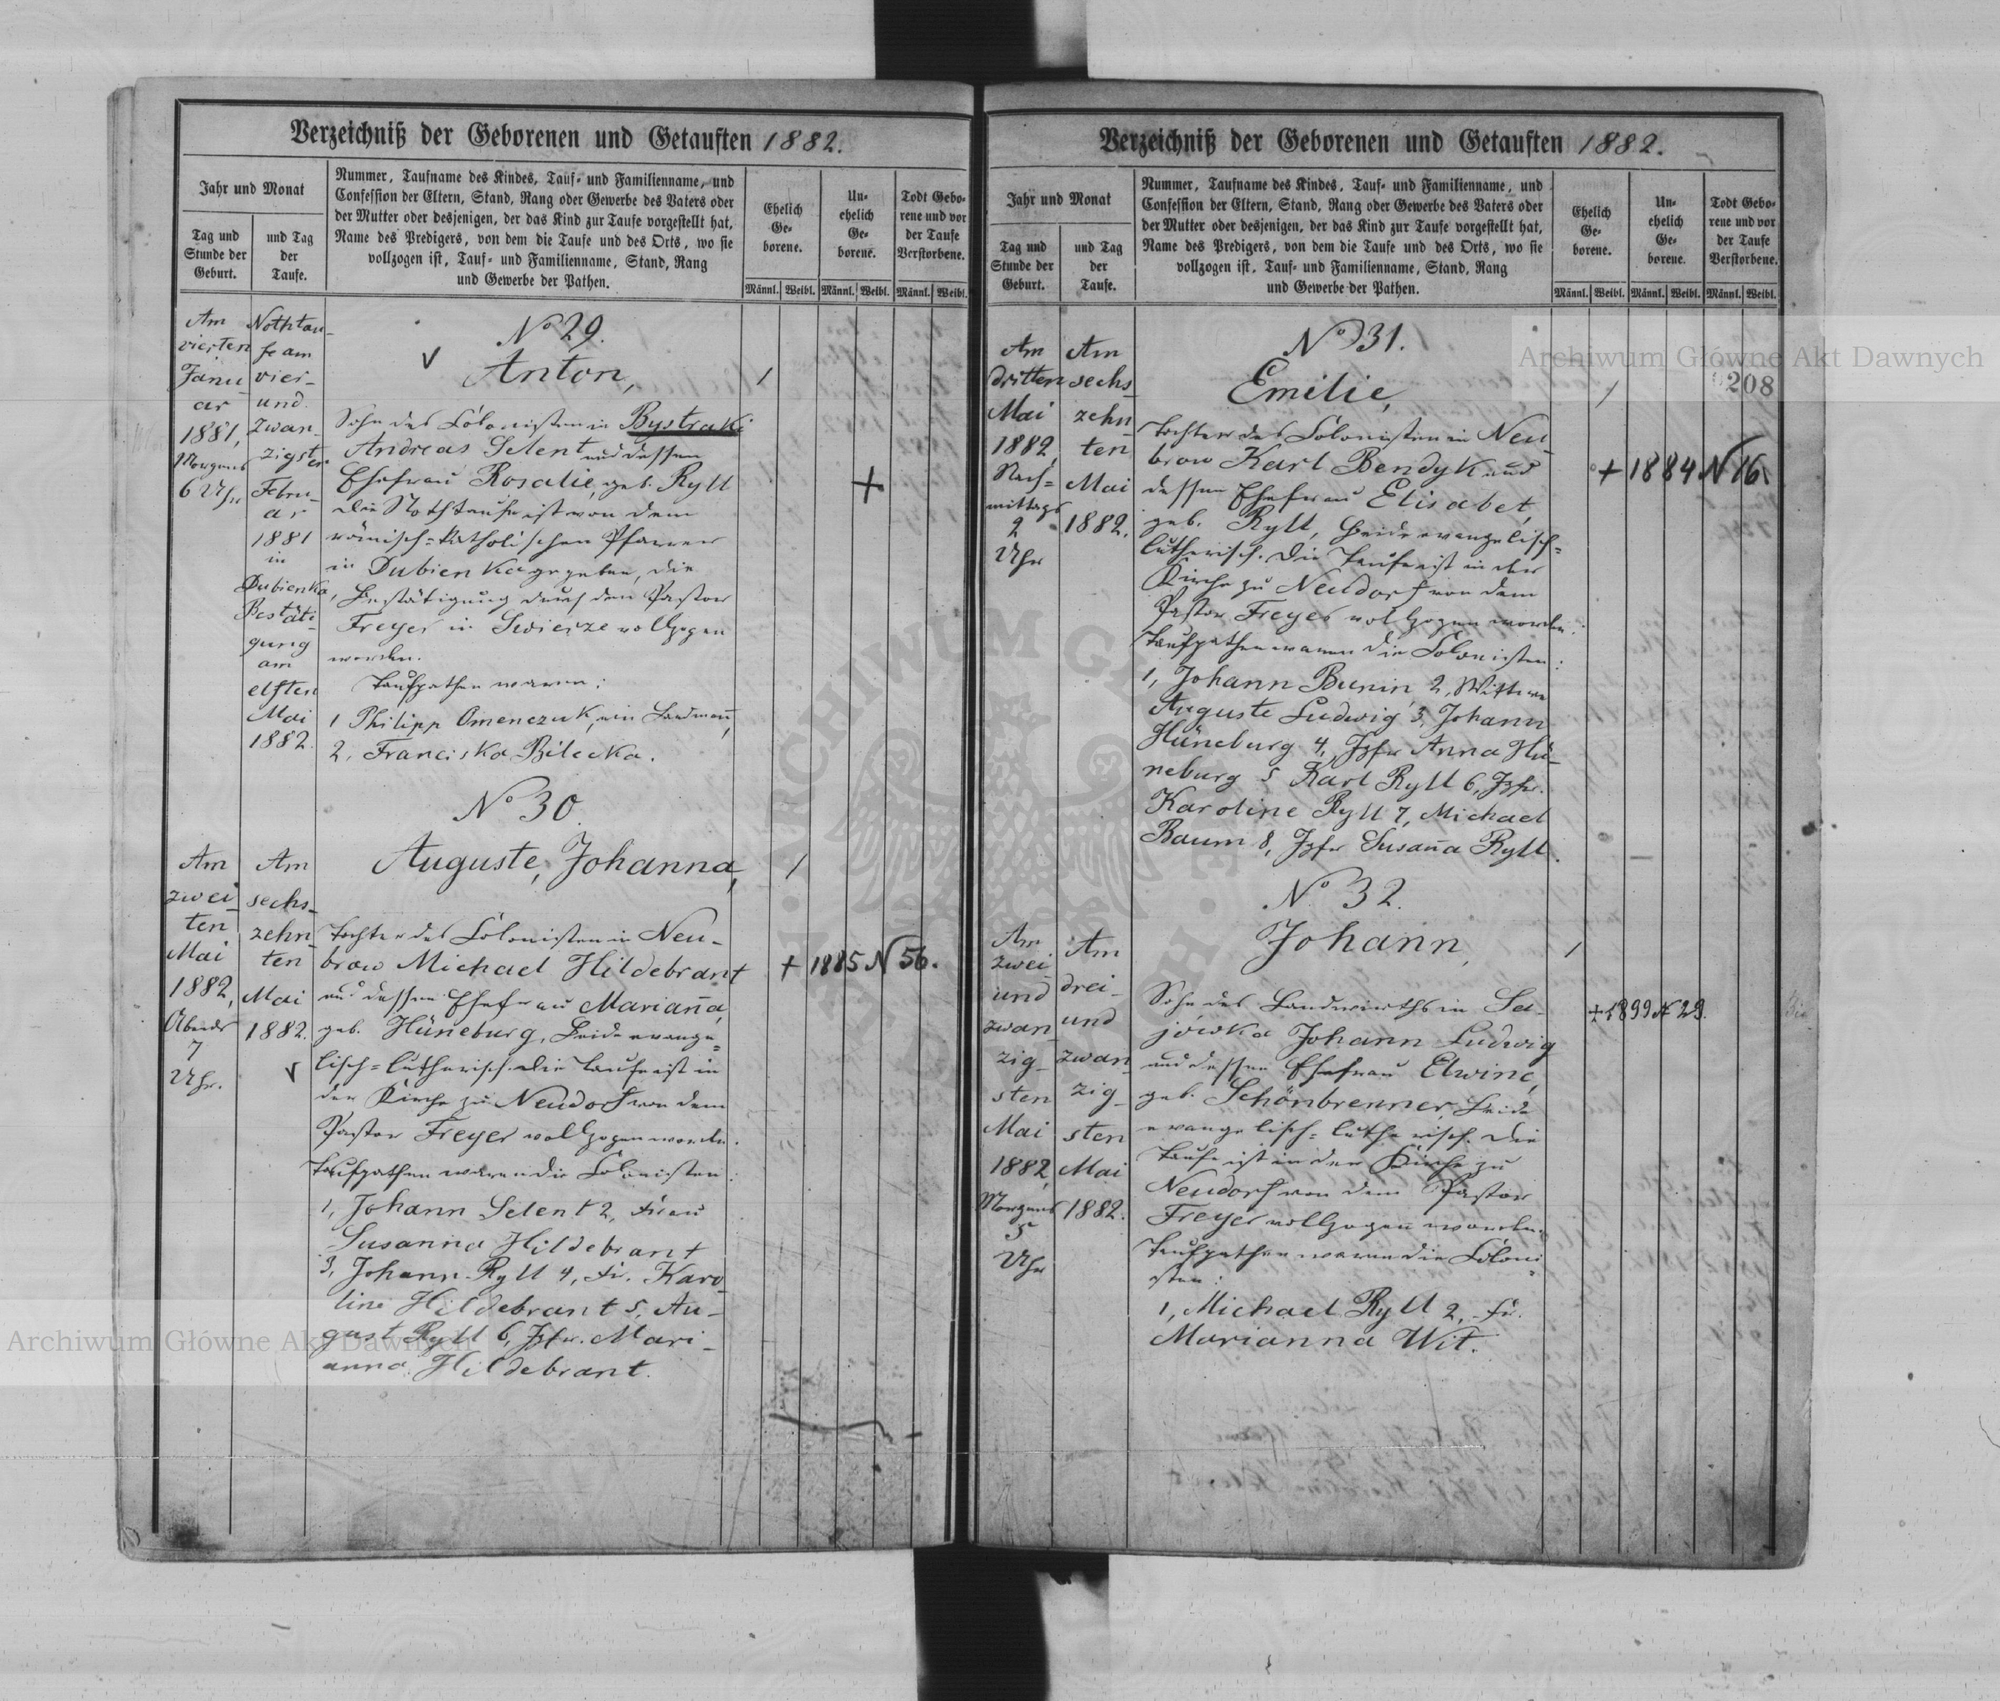 Verzeichniß der Geborenen und Getauften 1882.
Jahr und Monat
Tag und
Stunde der
Geburt.
und Tag
der
Taufe.
Nummer, Taufname des Kindes, Tauf- und Familienname, und
Confession der Eltern, Stand, Rang oder Gewerbe des Vaters oder
der Mutter oder desjenigen, der das Kind zur Taufe vorgestellt hat,
Name des Predigers, von dem die Taufe und des Orts, wo sie
vollzogen ist, Tauf- und Familienname, Stand, Rang
und Gewerbe der Pathen.
Ehelich
Ge-
borene.
Un-
ehelich
Ge-
borene.
Todt Gebo-
rene und vor
der Taufe
Verstorbene.
Männl. Weibl. Männl. Weibl. Männl. Weibl.
Am
vierten
Janu
ar
1881,
Morgens
6 Uhr
Nothtau-
fe am
vier-
und
zwan-
zigsten
Febru-
ar
1881
in
Dubienka,
Bestäti-
gung
am
elften
Mai
1882.
No 29.
Anton,
Sohn des Colonisten in Bystraki
Andreas Selent und dessen
Ehefrau Rosalie, geb. Ryll
Die Nothtaufe ist von dem
römisch-katholischen Pfarrer
in Dubienka gegeben, die
Bestätigung durch den Pastor
Freyer in Swierze vollzogen
worden.
Taufpathen waren:
1 Philipp Omenczuk, ein Landmann,
2, Franciska Bilecka.
1
+
Am
zwei-
ten
Mai
1882,
Abends
7
Uhr.
Am
sechs-
zehn-
ten
Mai
1882.
No 30.
Auguste, Johanna,
Tochter des Colonisten in Neu-
brow Michael Hildebrant
und dessen Ehefrau Marianna,
geb. Hüneburg, beide evange-
lisch-lutherisch. Die Taufe ist in
der Kirche zu Neudorf von dem
Pastor Freyer vollzogen worden.
Taufpathen waren die Colonisten:
1, Johann Selent 2, Frau
Susanna Hildebrant
3, Johann Ryll 4, Fr. Karo-
line Hildebrant 5, Au-
gust Ryll 6, Jgfr. Mari-
anna Hildebrant.
1
+ 1885 N 56.
Verzeichniß der Geborenen und Getauften 1882.
Jahr und Monat
Tag und
Stunde der
Geburt.
und Tag
der
Taufe.
Nummer, Taufname des Kindes, Tauf- und Familienname, und
Confession der Eltern, Stand, Rang oder Gewerbe des Vaters oder
der Mutter oder desjenigen, der das Kind zur Taufe vorgestellt hat,
Name des Predigers, von dem die Taufe und des Orts, wo sie
vollzogen ist, Tauf- und Familienname, Stand, Rang
und Gewerbe der Pathen.
Ehelich
Ge-
borene.
Un-
ehelich
Ge-
borene.
Todt Gebo-
rene und vor
der Taufe
Verstorbene.
Männl. Weibl. Männl. Weibl. Männl. Weibl.
Archiwum Główne Akt Dawnych
208
Am
dritten
Mai
1882,
Nach-
mittags
2
Uhr
Am
sechs
zehn-
ten
Mai
1882.
No 31.
Emilie,
Tochter des Colonisten in Neu
brow Karl Bendyk und
dessen Ehefrau Elisabet,
geb. Ryll, beide evangelisch-
lutherisch. Die Taufe ist in der
Kirche zu Neudorf von dem
Pastor Freyer vollzogen worden.
Taufpathen waren die Colonisten:
1, Johann Bunin, 2, Wittwe
Auguste Ludwig 3, Johann
Hüneburg 4, Jgfr Anna Hü-
neburg 5 Karl Ryll 6, Jgfr.
Karoline Ryll 7, Michael
Baum 8, Jgfr Susanna Ryll.
1
+ 1884 N 16.
Am
zwei
und
zwan
zig-
sten
Mai
1882,
Morgens
5
Uhr
Am
drei-
und
zwan
zig-
sten
Mai
1882.
No 32.
Johann,
Sohn des Landwirths in Sa-
jówka Johann Ludwig
und dessen Ehefrau Elwine,
geb. Schönbrenner, beide
evangelisch-lutherisch. Die
Taufe ist in der Kirche zu
Neudorf von dem Pastor
Freyer vollzogen worden.
Taufpathen waren die Coloni-
sten:
1, Michael Ryll 2, Fr.
Marianna Wit.
1
+ 1899 N 29.
Archiwum Główne Akt Dawnych
ARCHIWUM GŁ